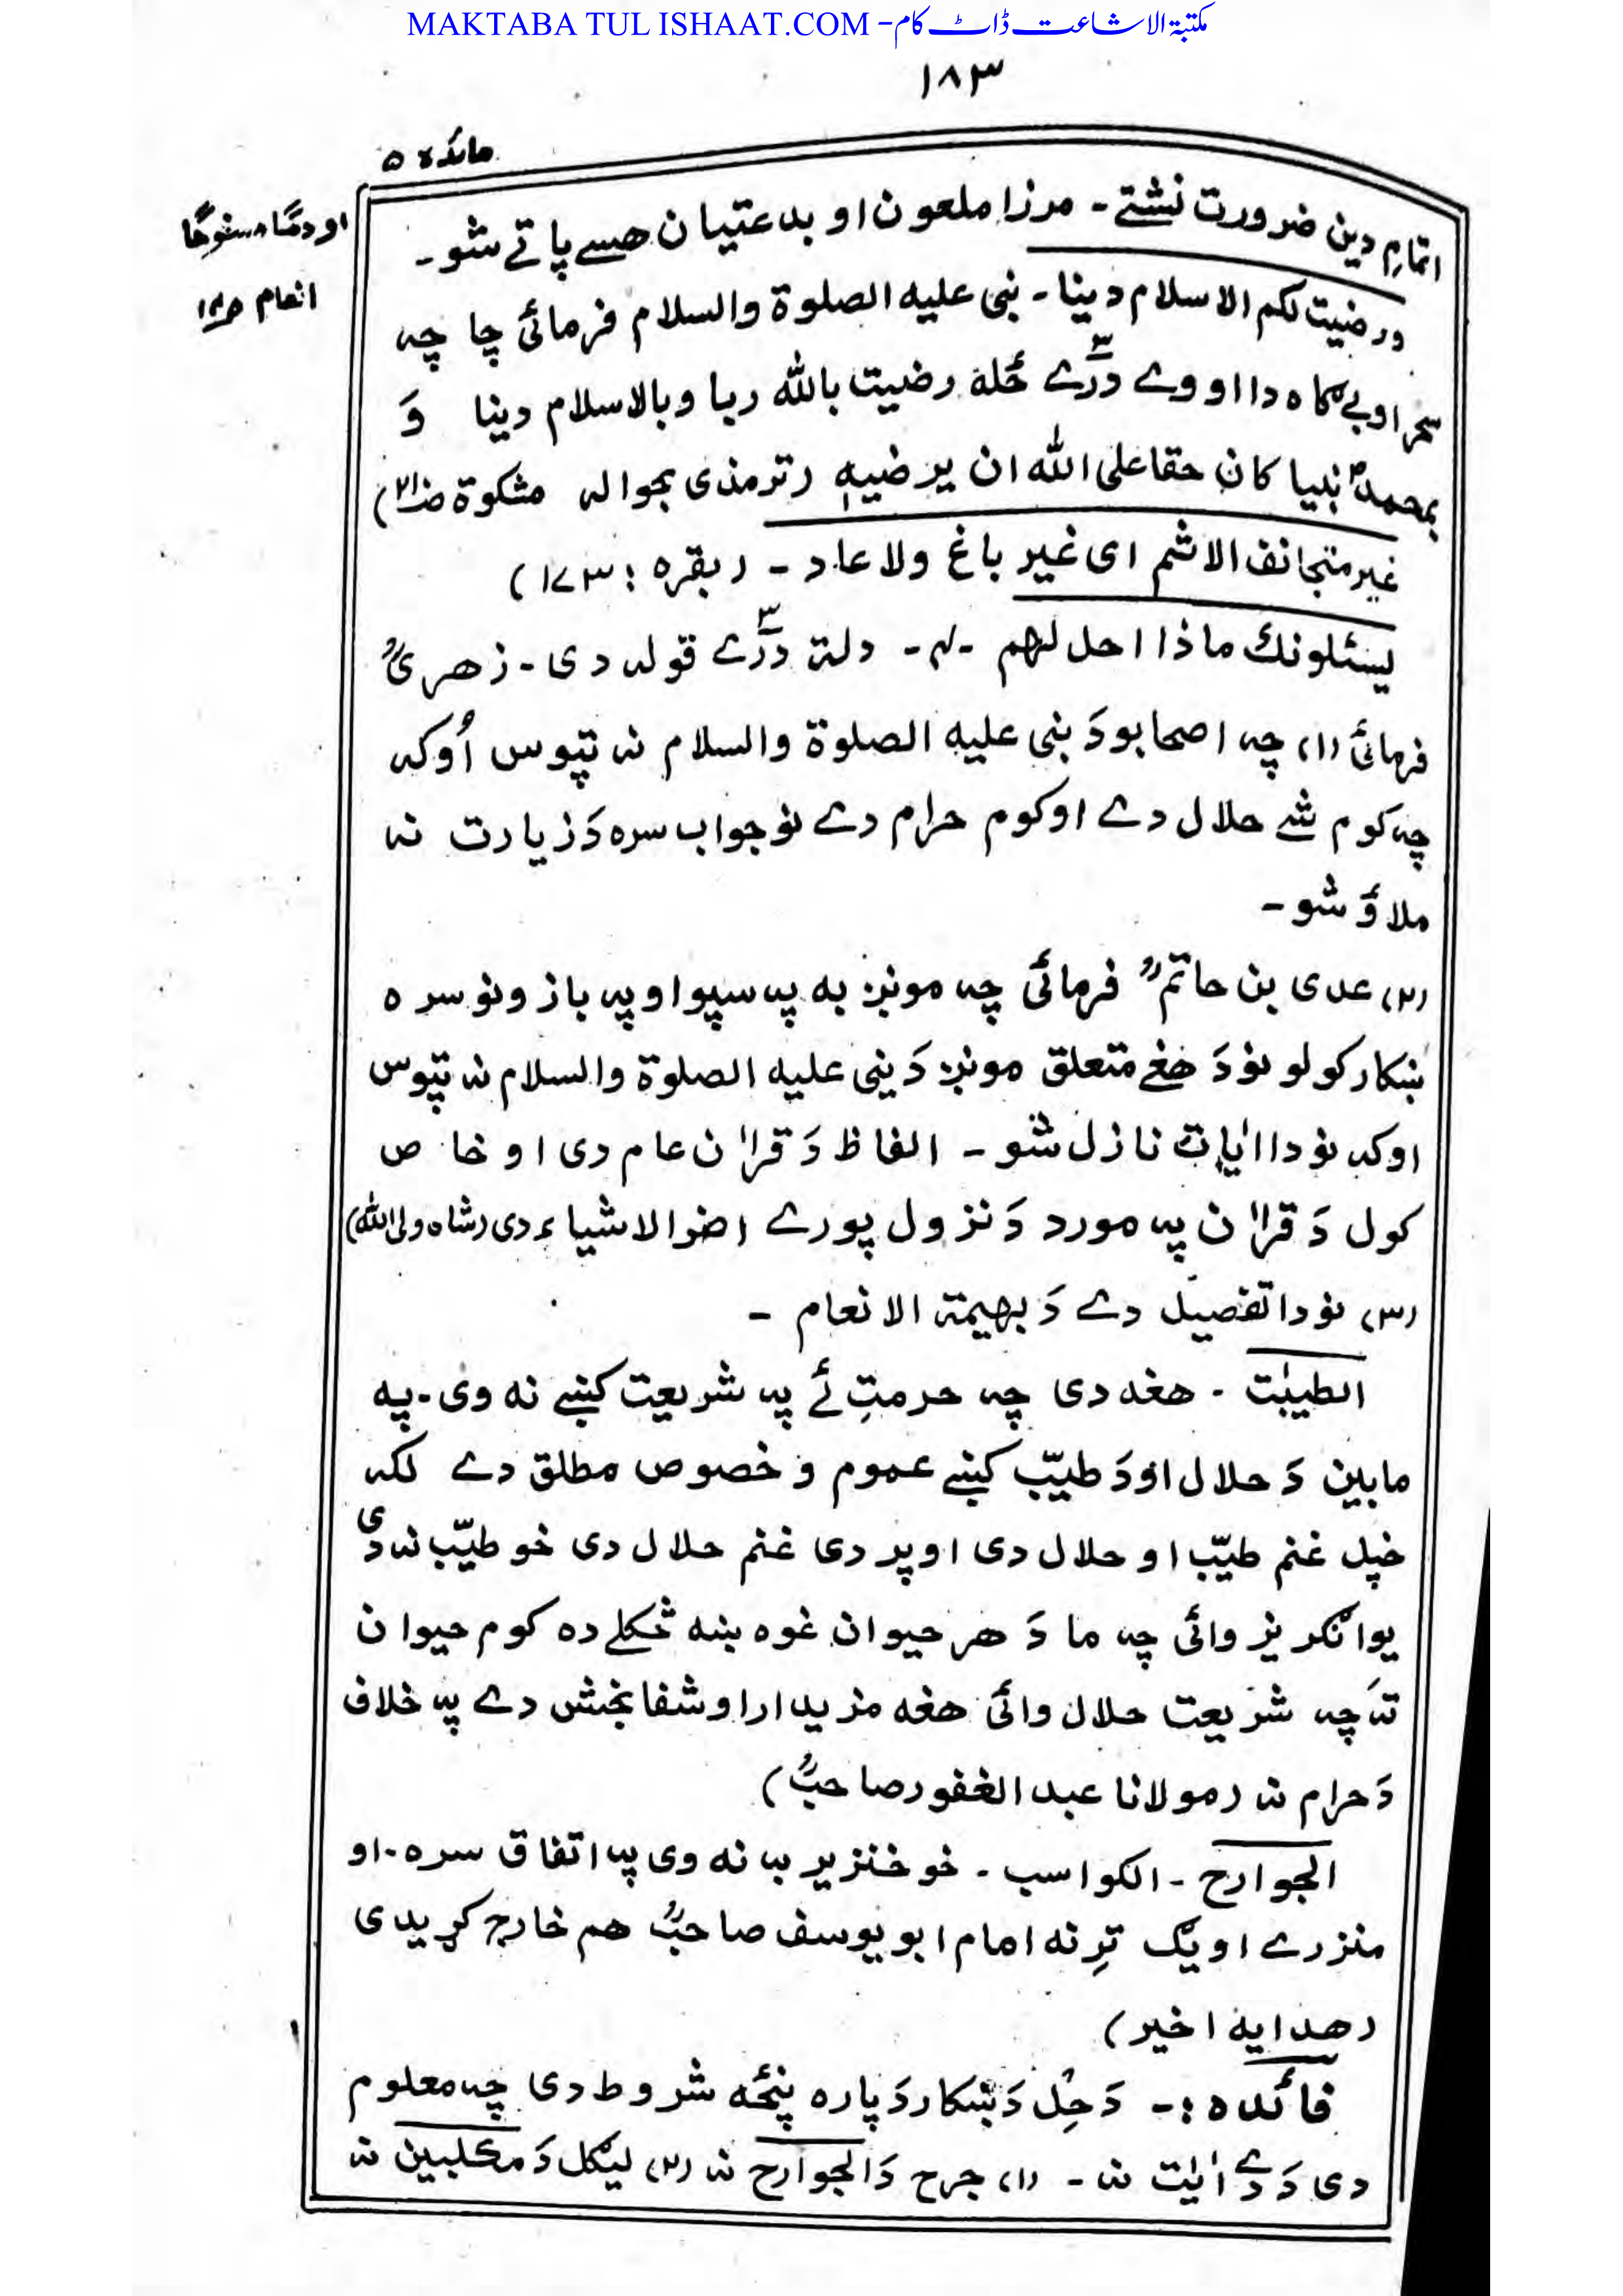 MAKTABA TUL ISHAAT.COM - مکتبۃ الاشاعت ڈاٹ کام
۱۸۳
مائدہ ۵
اتمامِ دین ضرورت نشتے - مرزا ملعون او بدعتیان ھسے پاتے شو -
ورضیت لکم الاسلام دینا - نبی علیه الصلوة والسلام فرمائی چا چه
سحر او بیگاه دا اووے دَرّے ځله رضیت بالله ربا وبالاسلام دینا وَ
بمحمد نبیا کان حقا علی الله ان یرضیه (ترمذی بحواله مشکوة ص۲۱)
غیر متجانف الاثم ای غیر باغ ولا عاد - (بقره : ۱۷۳)
یسئلونك ماذا احل لهم - دلته دَرّے قوله دی - زھریؒ
فرمائی (۱) چه اصحابو دَ نبی علیه الصلوة والسلام نه تپوس اُوکه
چه کوم شے حلال دے او کوم حرام دے نو جواب سره دَ زیارت نه
ملاؤ شو -
(۲) عدی بن حاتمؓ فرمائی چه مونږ به په سپو او په باز ونو سره
ښکار کولو نو دَ ھغے متعلق مونږ دَ نبی علیه الصلوة والسلام نه تپوس
اوکه نو دا ایات نازل شو - الفاظ دَ قراٰن عام دی او خاص
کول دَ قراٰن په مورد دَ نزول پورے اضر الاشیاء دی (شاه ولی الله)
(۳) نو دا تفصیل دے دَ بهیمة الانعام -
الطیبٰت - هغه دی چه حرمتِ ئے په شریعت کښے نه وی - په
مابین دَ حلال او دَ طیّب کښے عموم و خصوص مطلق دے لکه
خپل غنم طیّب او حلال دی او پردی غنم حلال دی خو طیّب نه دی
یو انگریز وائی چه ما دَ هر حیوان غوه ښه څکلے ده کوم حیوان
ته چه شریعت حلال وائی هغه مزیدار او شفا بخش دے په خلاف
دَ حرام نه (مولانا عبد الغفور صاحبؒ)
الجوارح - الکواسب - خو خنزیر به نه وی په اتفاق سره - او
منزرے او یګ ترِ نه امام ابو یوسف صاحبؒ هم خارج کړیدی
(هدایه اخیر)
فائده :- دَ حِل دَ ښکار دَ پاره پنځه شروط دی چه معلوم
دی دَ دے اٰیت نه - (۱) جرح دَ الجوارح نه (۲) لیګل دَ مکلبین نه